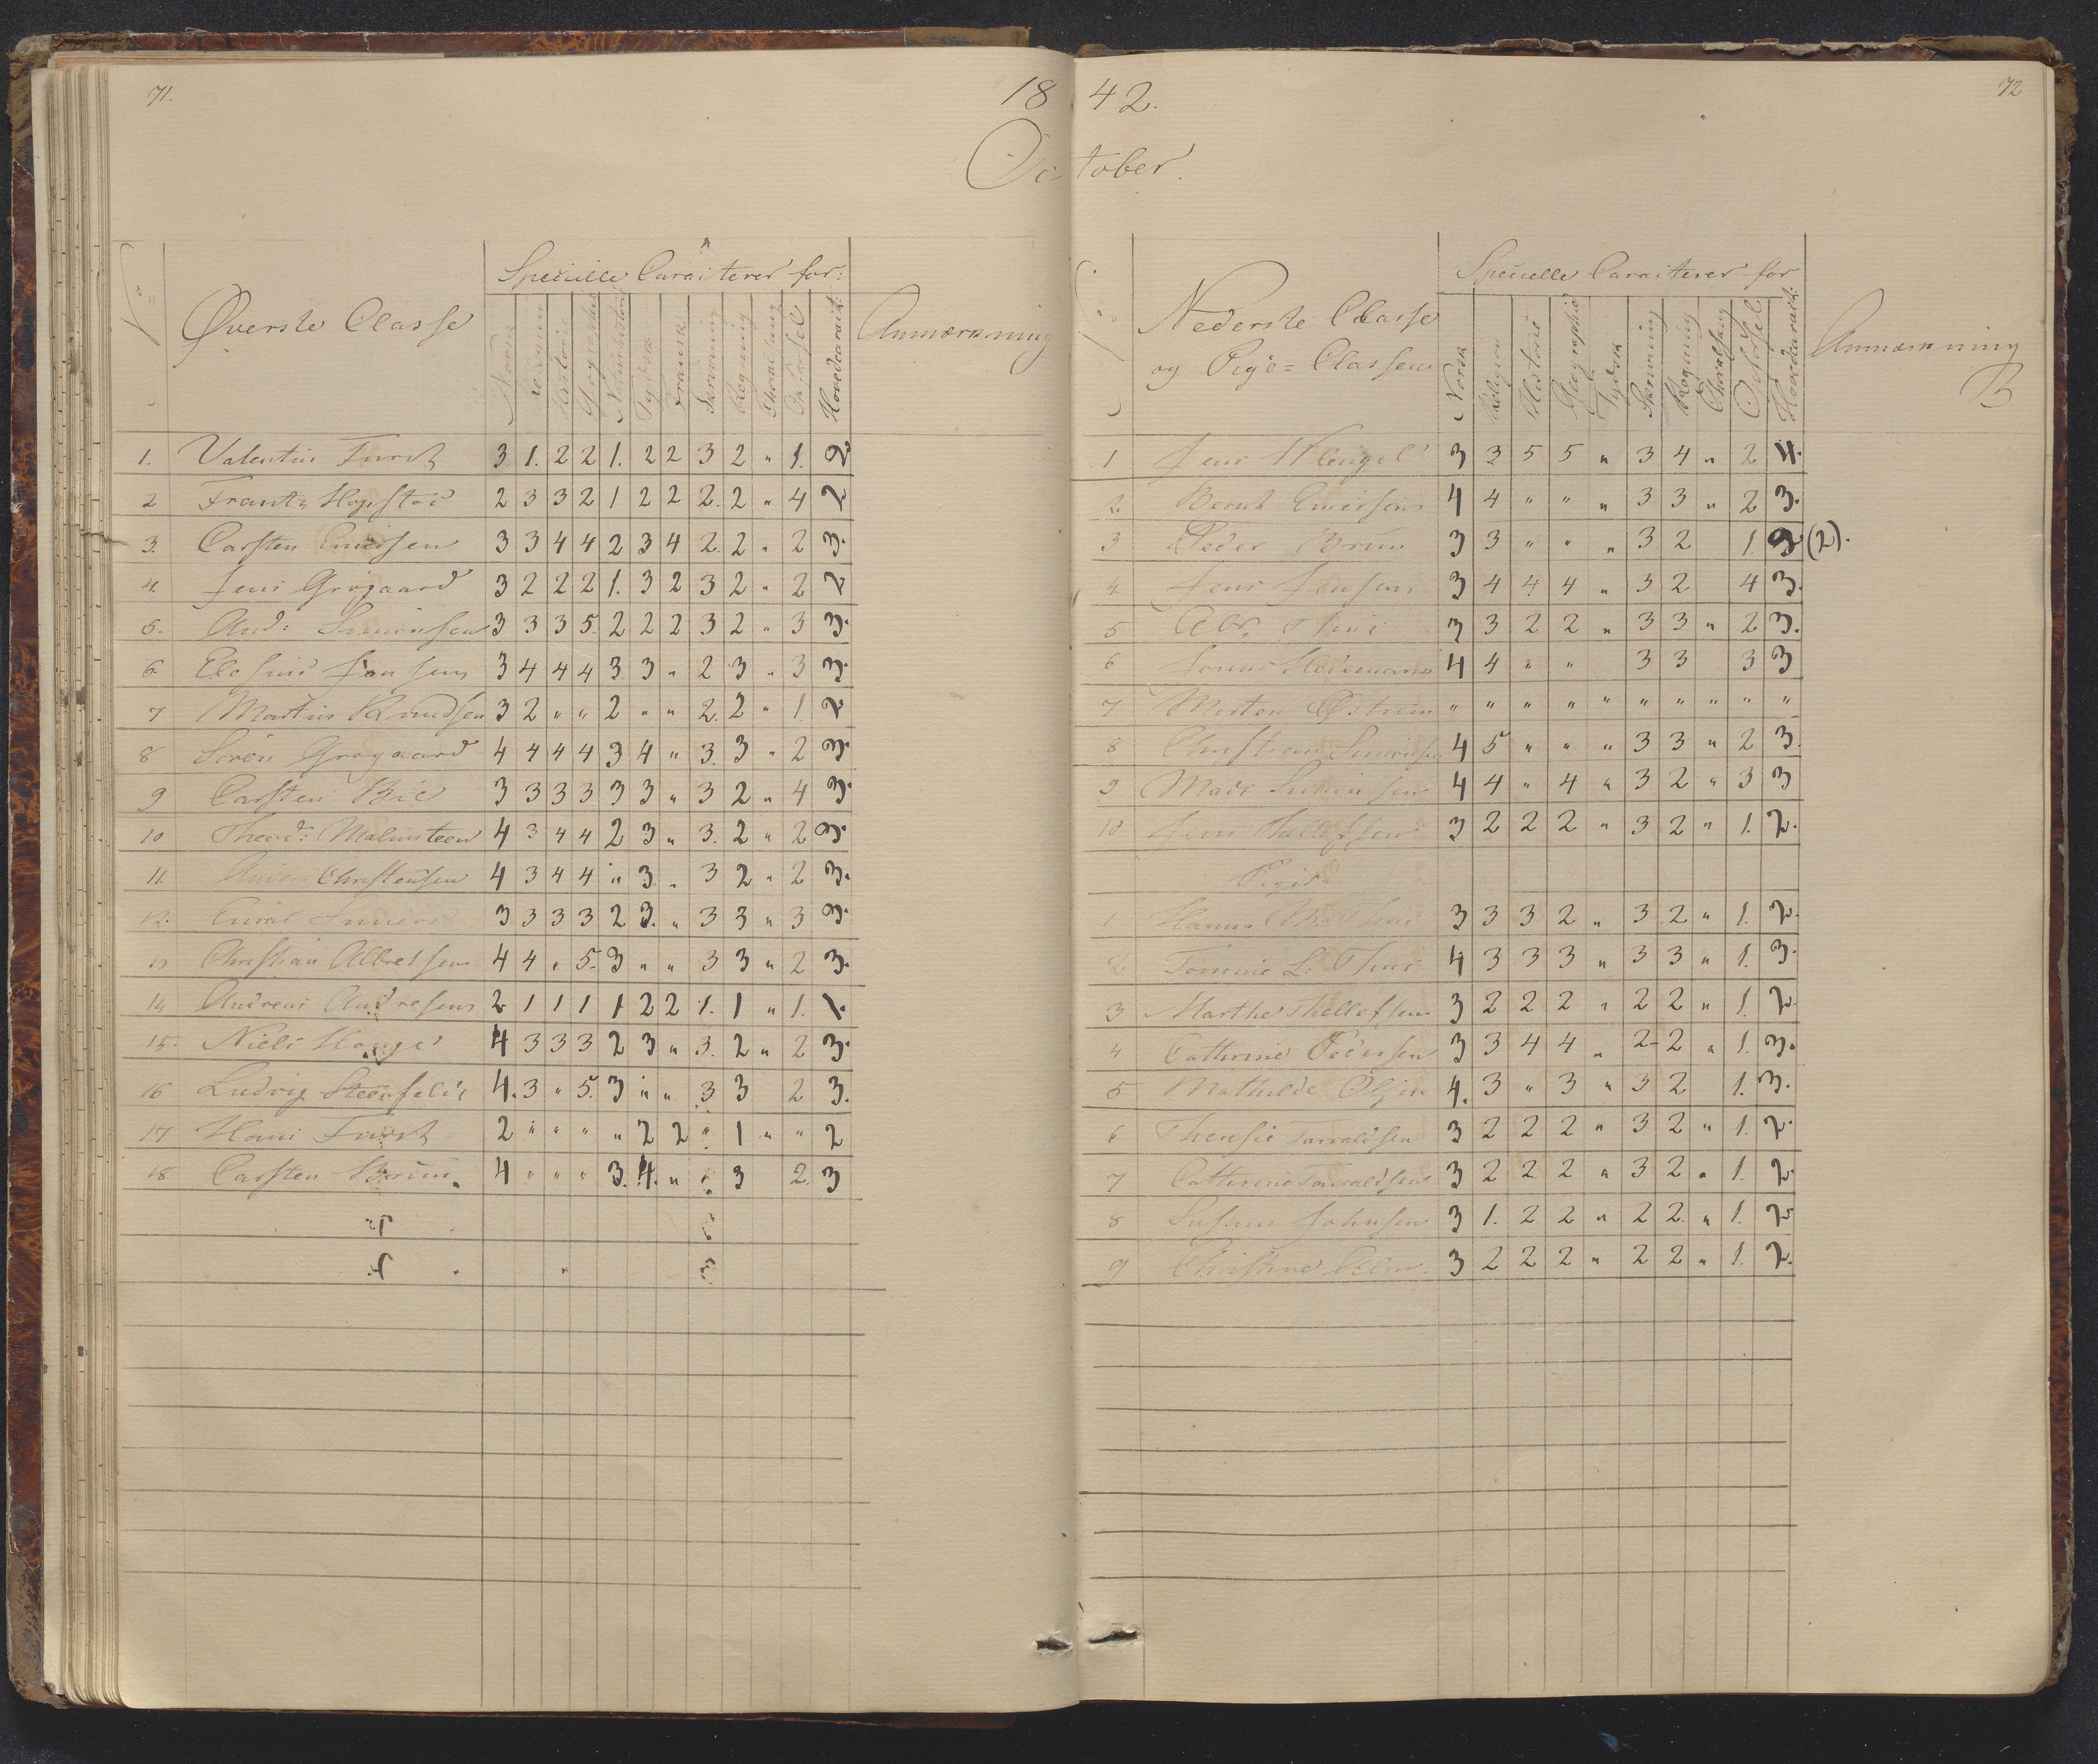 71.
18
October
Øverste Classe
Specielle Caracterer for:
Norsk Religion Historie Geographie Naturhistorie Tydsk Fransk Skrivning Regning Choralsang Opførsel Hovedcarakt:
Anmærkning
1. Valentin Furst 3 1. 2 2 1. 2 2 3 2 " 1. 2
2 Frantz Hopstoc 2 3 3 2 1 2 2 2. 2 " 4 2
3. Carsten Enersen 3 3 4 4 2 3 4 2. 2. " 2 3.
4. Jens Grøgaard 3 2 2 2 1. 3 2 3 2 " 2 2
5. And: Simonsen 3 3 3 5. 2 2 2 3 2 " 3 3.
6. Elesius Jansen 3 4 4 4 3 3 " 2 3 " 3 3.
7 Martin Knudsen 3 2 " " 2 " " 2. 2 " 1. 2
8 Søren Grøgaard 4 4 4 4 3 4 " 3. 3 " 2 3.
9 Carsten Bie 3 3 3 3 3 3 " 3 2 " 4 3.
10 Theod: Malmsteen 4 3 4 4 2 3 " 3. 2 " 2 3.
11. Christensen 4 3 4 4 " 3 " 3 2 " 2 3.
12. 3 3 3 3 2 3. " 3 3 " 3 3.
13 Christian Albretsen 4 4 " 5. 3 " " 3 3 " 2 3.
14 Andreas Andresen 2 1 1 1 1 2 2 1. 1 " 1. 1.
15. Niels Hauge 4 3 3 3 2 3 " 3. 2 " 2 3.
16 Ludvig 4. 3 " 5. 3 " " 3 3 2 3.
17 Hans Furst 2 " " " " 2 2 " 1 " " 2
18 Carsten Brun 4 " " " 3. 4. " " 3 2. 3
72
42.
Nederste Classe
og Pige=Classen
Specielle Caracterer for
Norsk Religion Historie Geographie Tydsk Skrivning Regning Choralsang Opførsel Hovedcarakt:
Anmærkning
1 Jens Klengel 3 3 5 5 " 3 4 " 2 4.
2. Bernt Enersen 4 4 " " " 3 3 " 2 3.
3 Peder Brun 3 3 " " " 3 2 1. 2 (2).
4. Jens Jensen 3 4 4 4 " 3 2 4 3.
5 Abr. Thue 3 3 2 2 " 3 3 " 2 3.
6 Jonas 4 4 " " 3 3 3 3
7 Morten " " " " " " " " " "
8 Christian Simonsen 4 5 " " " 3 3 " 2 3.
9 Mads Simonsen 4 4 " 4 " 3 2 " 3 3
10 Jens Tallefsen 3 2 2 2 " 3 2 " 1. 2.
Piger
1 Hanna Thue 3 3 3 2 " 3 2 " 1. 2.
2. Tommine L: Thue 4 3 3 3 " 3 3 " 1. 3.
3 Marthe Thellefsen 3 2 2 2 " 2 2 " 1. 2.
4 Cathrine Pedersen 3 3 4 4 " 2 2 " 1. 3.
5 Mathilde Olsen 4. 3 " 3 " 3 2 1. 3.
6 Theresie Tarraldsen 3 2 2 2 " 3 2 " 1. 2.
7 Cathrine Tarraldsen 3 2 2 2 " 3 2 " 1. 2
8 Susane Johnsen 3 1. 2 2 " 2 2. " 1. 2
9 Christine 3 2 2 2 " 2 2 " 1. 2.